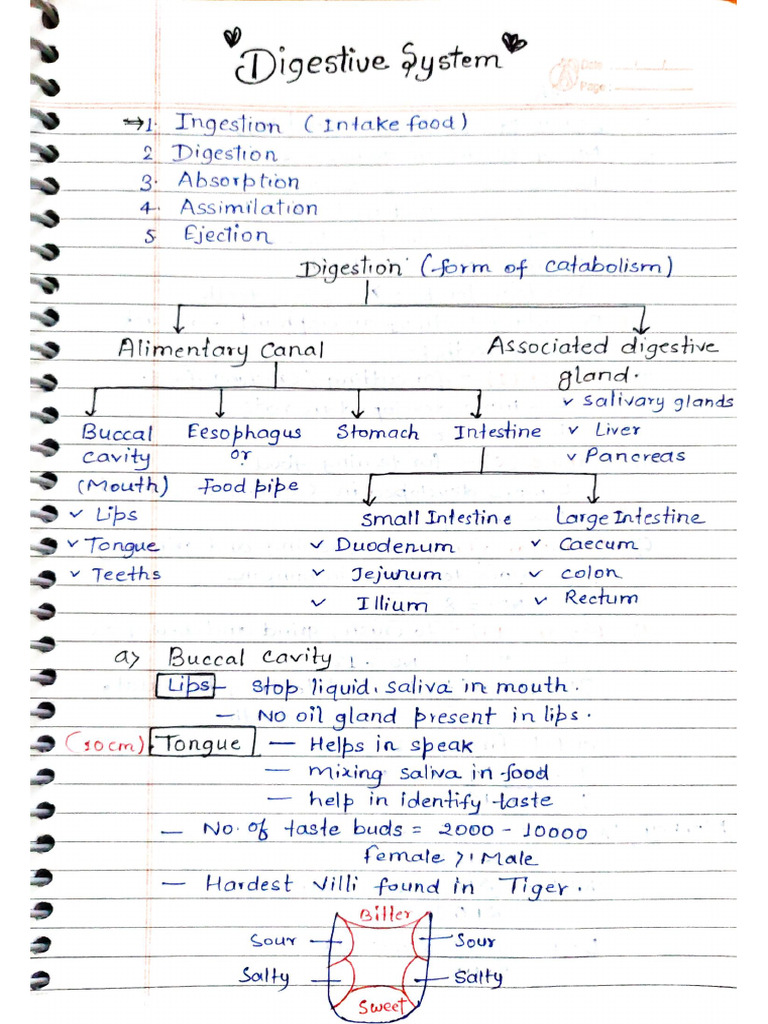 Digestive System
Date
Page:
1. Ingestion (Intake food)
2 Digestion
3. Absorption
4. Assimilation
5 Ejection
Digestion (form of catabolism)
Alimentary Canal
Associated digestive
gland.
✓ Salivary glands
✓ Liver
✓ Pancreas
Buccal
cavity
(Mouth)
✓ Lips
✓ Tongue
✓ Teeths
Eesophagus
or
food pipe
Stomach
Intestine
Small Intestine
✓ Duodenum
✓ Jejunum
✓ Illium
Large Intestine
✓ Caecum
✓ colon
✓ Rectum
a) Buccal cavity
Lips - Stop liquid, saliva in mouth.
- No oil gland present in lips.
(10cm) Tongue - Helps in speak
- mixing saliva in food
- help in identify taste
- No. of taste buds = 2000 - 10000
female > Male
- Hardest villi found in Tiger.
Bitter
Sour
Sour
Salty
Salty
Sweet